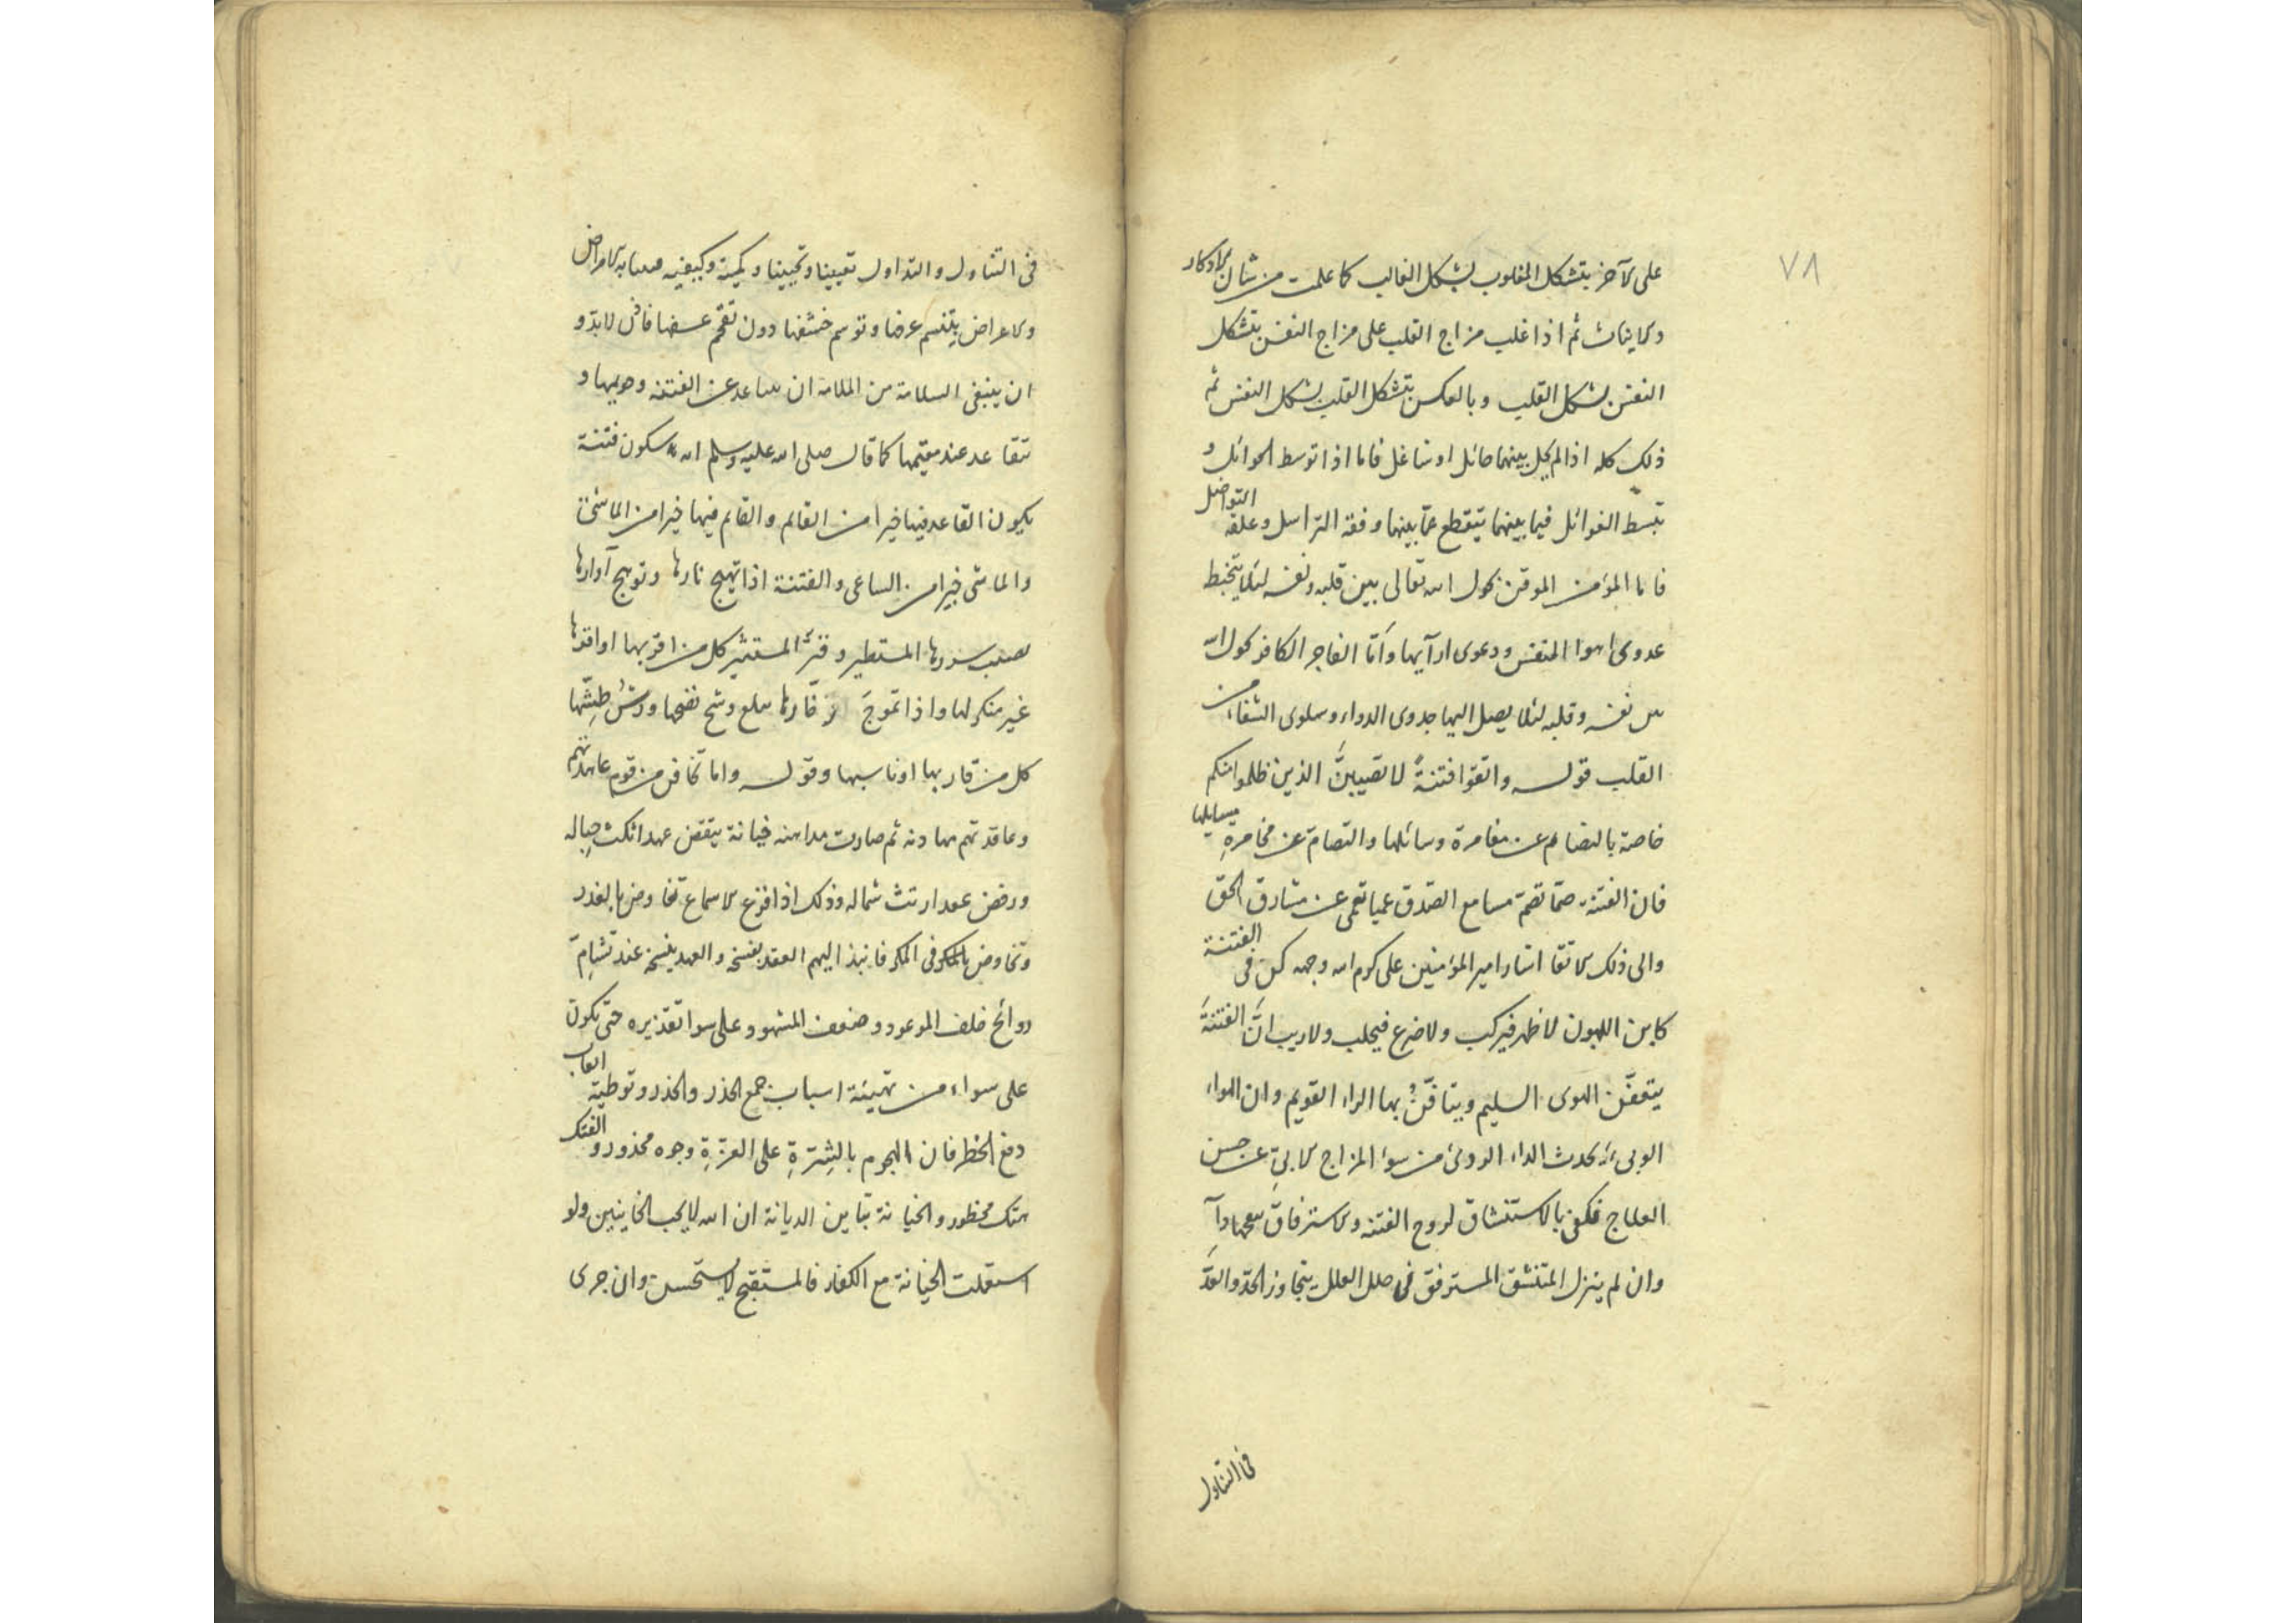 ٧٨
على الآخر يتشكل المغلوب بشكل الغالب كما علمت من شان الاذكار
والاناث ثم اذا غلب مزاج القلب على مزاج النفس يتشكل
النفس بشكل القلب وبالعكس يتشكل القلب بشكل النفس ثم
ذلك كله اذا لم يحل بينهما حائل او شاغل فاما اذا توسط الحوائل و
تبسط الغوائل فيما بينهما ينقطع عما بينهما وفقة التراسل وعلقة التواصل
فاما المؤمن الموقن يحول الله تعالى بين قلبه ونفسه لئلا يتخبط
عدوى اهوا النفس ودعوى ارآيها وامّا الفاجر الكافر يحول الله
بين نفسه وقلبه لئلا يصل اليها جدوى الدواء وسلوى الشفاء من
القلب قوله واتقوا فتنةً لا تصيبنَّ الذين ظلموا منكم
خاصة بالتضام عن مغامرة وسائلها والتصام عن مخامرةِ مسايلها
فان الفتنة صمّا تصمّ مسامع الصدق عميا تعمى عن مشارق الحق
والى ذلك الاتقا اشار امير المؤمنين على كرم الله وجهه كن فى الفتنة
كابن اللبون لا ظهر فيركب ولا ضرع فيحلب ولا ريب انَّ الفتنةَ
يتعفّن الهوى السليم ويتافّنُ بها الراء القويم وان الهواء
الوبىء يحدث الداء الردىء من سوء المزاج الابىِ عن حسن
العلاج فكفى بالاستنشاق لروح الفتنة والاسترفاق
وان لم ينزل المتنشق المسترفق فى حلل العلل يتجاوز الحدّ والعدّ
فى التناول
فى التناول والتداول تعيينا وتحيينا وكمية وكيفيه الامراض
والاعراض يتنسم عرضا وتوسم دون تقحّم فاذن لا بدّ و
ان ينبغى السلامة من الملامة ان عن الفتنه وحويها و
تتقاعد عند مقيمها كما قال صلى الله عليه وسلم انه سيكون فتنة
يكون القاعد فيها خيرا من القائم والقايم فيها خيرا من الماشى
والماشى خيرا من الساعى والفتنة اذا تهيج نارها وتوهج آوارها
يصيب شررها المستطير المستثير كل من اقربها او اقدها
غير منكر لها واذا تموّجَ نضحها ورشُ طشّها
كل من قاربها او ناسبها وقوله واما تخافن من قوم عاهدتهم
وعاقدتهم مهادنه ثم صارت مداهنه خيانة ينقض عهدا نكث حباله
ورفض عقدا رتث شماله وذلك اذا افزع الاسماع تفاوض بالغدر
وتخاوض بالمكر فى المكر فانبذ اليهم العقد بفسخه والعهد ينسخه عند تشامّ
روائح خلف الموعود وضعف المشهود وعلى سوا تقديره حتى تكون
على سواء من تهيئة اسباب جمع الحذر والحذر وتوطية ابواب
دفع الخطر فان الهجوم بالشِرّةِ على الغرّةِ وجوه محذور و الفتك
هتك محظور والخيانة تباين الديانة ان الله لا يحب الخاينين ولو
استقلت الخيانة مع الكفار فالمستقبح لا يستحسن وان جرى